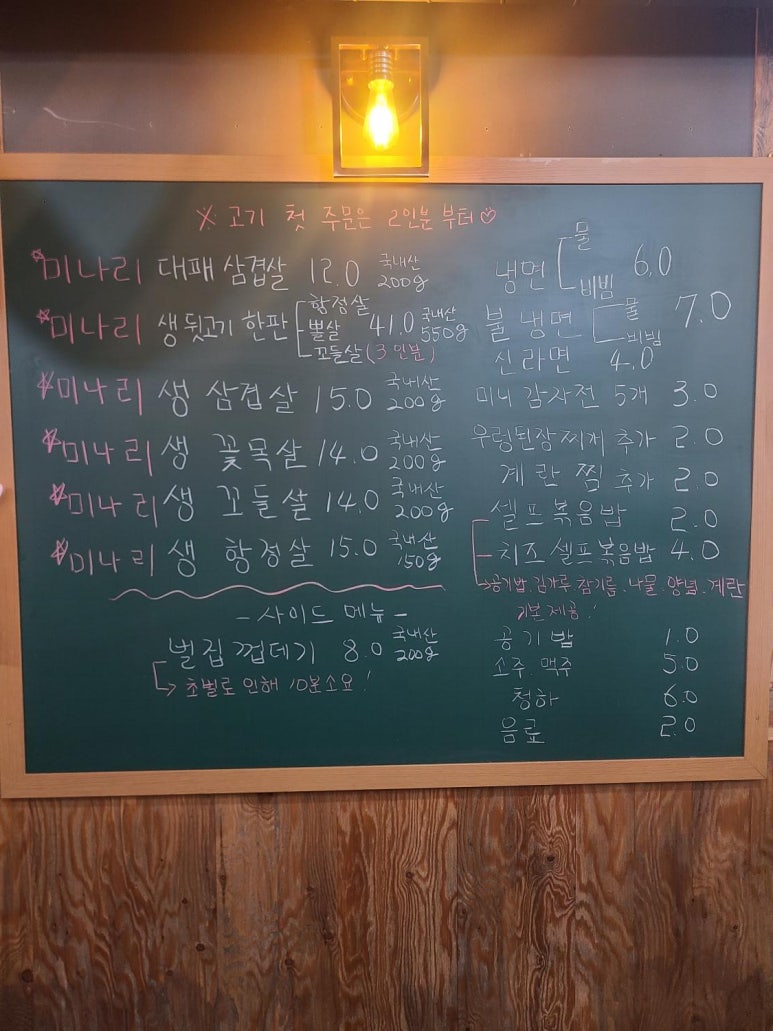 ※ 고기 첫 주문은 2인분 부터 ♡
☆미나리 대패 삼겹살 12.0 국내산 200g
☆미나리 생 뒷고기 한판 항정살 뽈살 꼬들살 (3인분) 41.0 국내산 550g
☆미나리 생 삼겹살 15.0 국내산 200g
☆미나리 생 꽃목살 14.0 국내산 200g
☆미나리 생 꼬들살 14.0 국내산 200g
☆미나리 생 항정살 15.0 국내산 150g
- 사이드 메뉴 -
벌집 껍데기 8.0 국내산 200g
→ 초벌로 인해 10분소요!
냉면 물 비빔 6.0
불 냉면 물 비빔 7.0
신라면 4.0
미니 감자전 5개 3.0
우렁된장찌개 추가 2.0
계란 찜 추가 2.0
셀프볶음밥 2.0
치즈 셀프볶음밥 4.0
→공기밥. 김가루. 참기름. 나물. 양념. 계란
기본제공!
공기밥 1.0
소주. 맥주 5.0
청하 6.0
음료 2.0